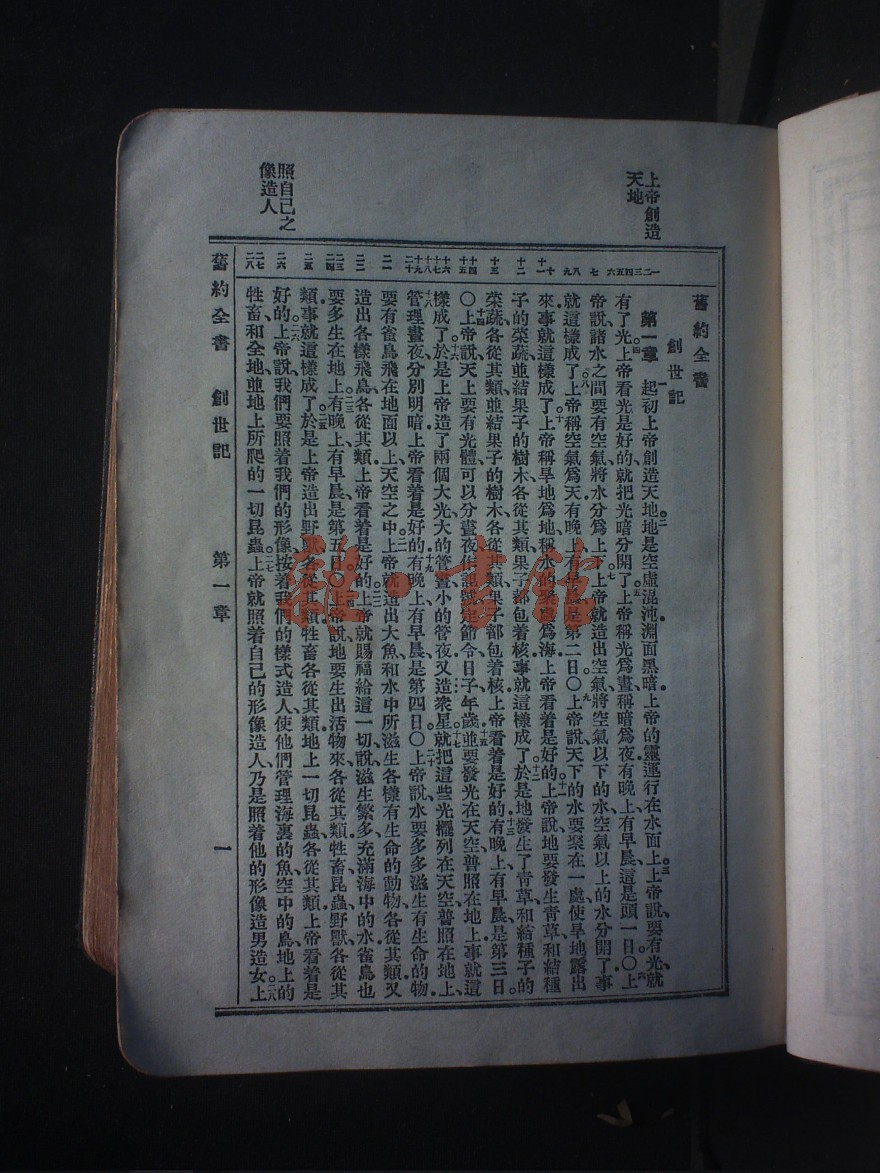 上帝創造
天地
照自己之
像造人
一二三四五六七八九十十一十二十三十四十五十六十七十八十九二十二一二二二三二四二五二六二七二八
舊約全書
創世記
第一章 起初上帝創造天地、二地是空虛混沌、淵面黑暗、上帝的靈運行在水面上、三上帝說、要有光、就
有了光、四上帝看光是好的、就把光暗分開了、五上帝稱光爲晝、稱暗爲夜、有晚上、有早晨、這是頭一日。〇六上
帝說、諸水之間要有空氣、將水分爲上下、七上帝就造出空氣、將空氣以下的水、空氣以上的水分開了、事
就這樣成了、八上帝稱空氣爲天、有晚上、有早晨、是第二日。〇九上帝說、天下的水要聚在一處、使旱地露出
來、事就這樣成了、十上帝稱旱地爲地、稱水的聚處爲海、上帝看着是好的、十一上帝說、地要發生青草、和結種
子的菜蔬、並結果子的樹木、各從其類、果子都包着核、事就這樣成了、十二於是地發生了青草、和結種子的
菜蔬、各從其類、並結果子的樹木、各從其類、果子都包着核、上帝看着是好的、十三有晚上、有早晨、是第三日。
〇十四上帝說、天上要有光體、可以分晝夜、作記號、定節令、日子、年歲、十五並要發光在天空、普照在地上、事就這
樣成了、十六於是上帝造了兩個大光、大的管晝、小的管夜、又造衆星、十七就把這些光擺列在天空、普照在地上、
十八管理晝夜、分別明暗、上帝看着是好的、十九有晚上、有早晨、是第四日。〇二十上帝說、水要多多滋生有生命的物、
要有雀鳥飛在地面以上、天空之中、二一上帝就造出大魚、和水中所滋生各樣有生命的動物、各從其類、又
造出各樣飛鳥、各從其類、上帝看着是好的、二二上帝就賜福給這一切、說、滋生繁多、充滿海中的水、雀鳥也
要多生在地上、二三有晚上、有早晨、是第五日。〇二四上帝說、地要生出活物來、各從其類、牲畜、昆蟲、野獸、各從其
類、事就這樣成了、二五於是上帝造出野獸、各從其類、牲畜、各從其類、地上一切昆蟲、各從其類、上帝看着是
好的、二六上帝說、我們要照着我們的形像、按着我們的樣式造人、使他們管理海裏的魚、空中的鳥、地上的
牲畜、和全地、並地上所爬的一切昆蟲、二七上帝就照着自己的形像造人、乃是照着他的形像造男造女、二八上
舊約全書 創世記 第一章 一